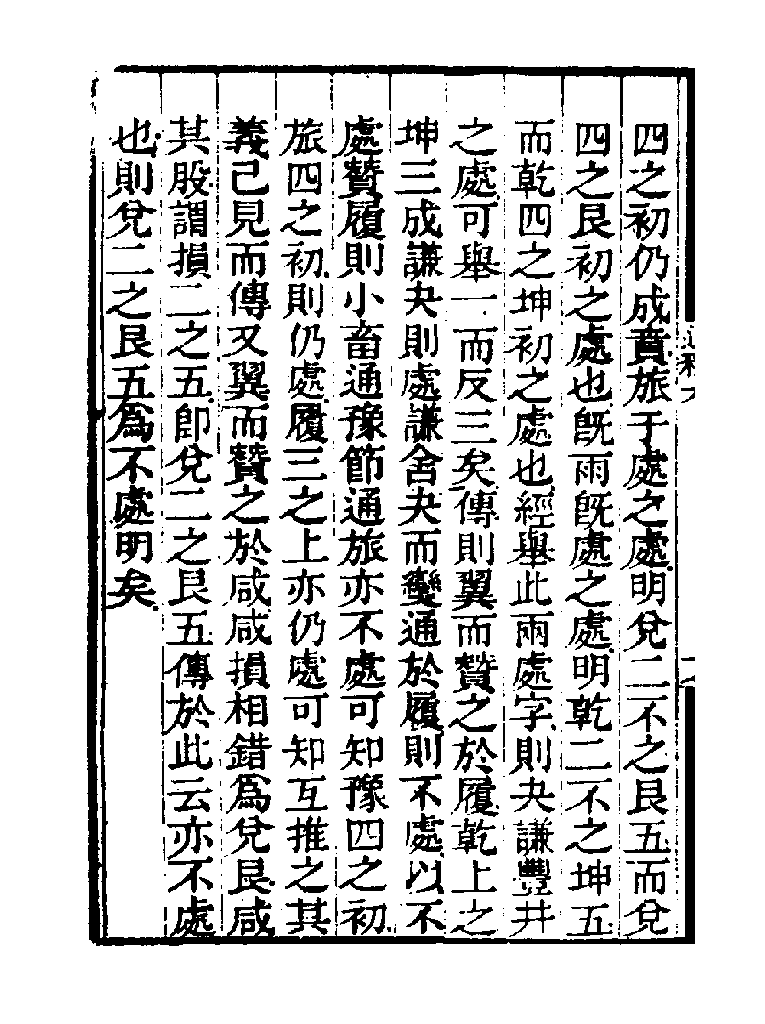 四之初仍成賁旅于處之處明兌二不之艮五而兌
四之艮初之處也旣雨旣處之處明乾二不之坤五
而乾四之坤初之處也經舉此兩處字則夬謙豐井
之處可舉一而反三矣傳則翼而贊之於履乾上之
坤三成謙夬則處謙舍夬而變通於履則不處以不
處贊履則小畜通豫節通旅亦不處可知豫四之初
旅四之初則仍處履三之上亦仍處可知互推之其
義己見而傳又翼而贊之於咸咸損相錯爲兌艮咸
其股謂損二之五卽兌二之艮五傳於此云亦不處
也則兌二之艮五爲不處明矣